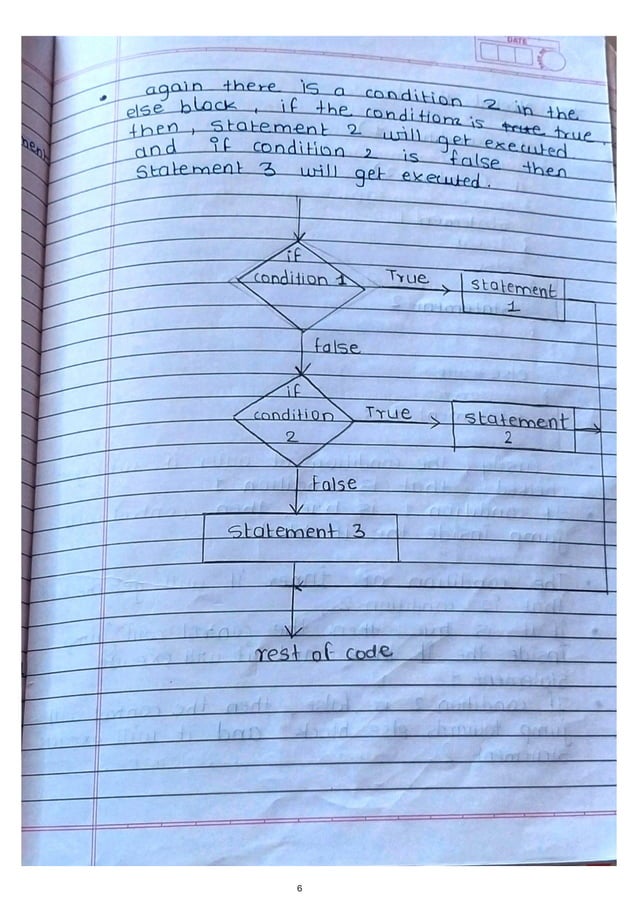 DATE
• again there is a condition 2 in the
else block, if the condition2 is true true.
then, statement 2 will get executed.
and if condition 2 is false then
statement 3 will get executed.
if
condition 1
True
statement
1
false
if
condition
2
True
statement
2
false
Statement 3
rest of code
6